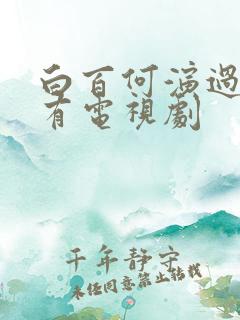 白百何演過
有電視劇
千年静守
未经同意禁止转载